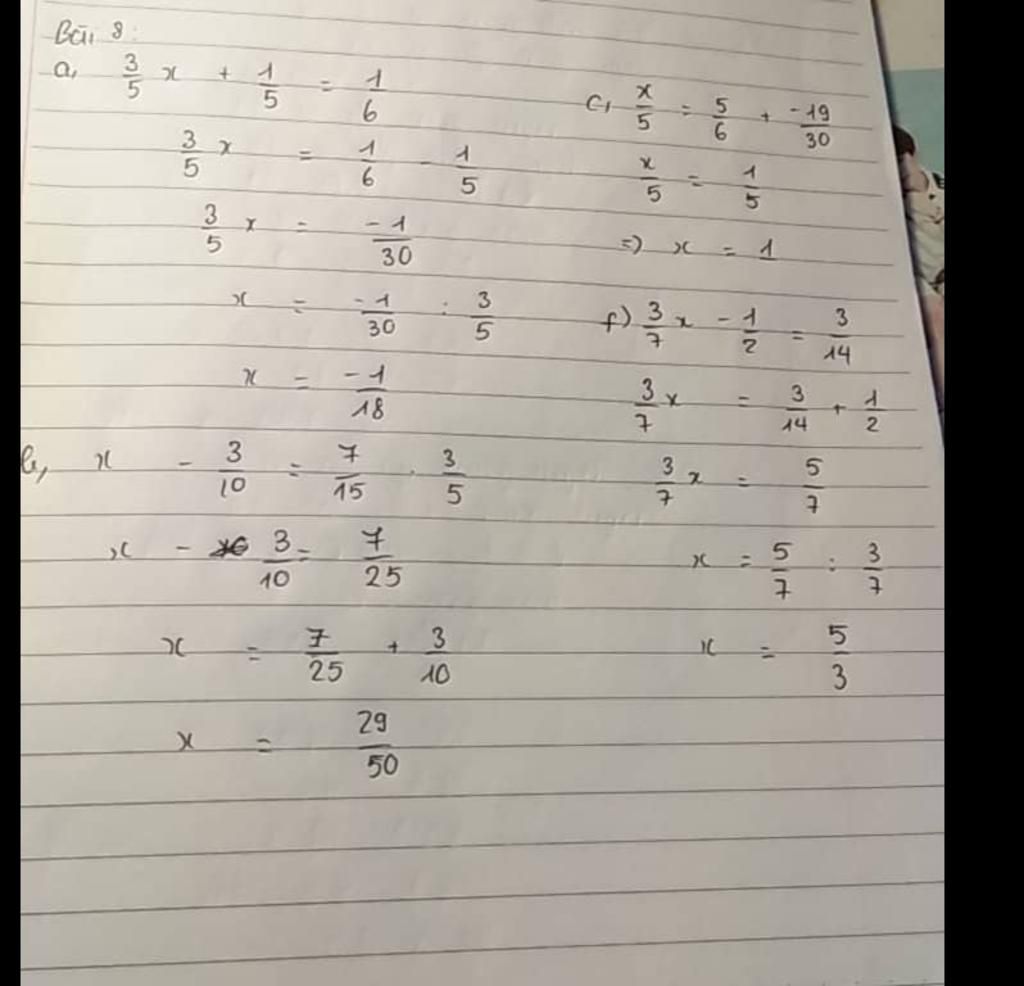 Bài 8:
a, 3/5 x + 1/5 = 1/6
3/5 x = 1/6 - 1/5
3/5 x = -1/30
x = -1/30 : 3/5
x = -1/18
b, x - 3/10 = 7/15 . 3/5
x - 3/10 = 7/25
x = 7/25 + 3/10
x = 29/50
c, x/5 = 5/6 + -19/30
x/5 = 1/5
=) x = 1
f) 3/7 x - 1/2 = 3/14
3/7 x = 3/14 + 1/2
3/7 x = 5/7
x = 5/7 : 3/7
x = 5/3